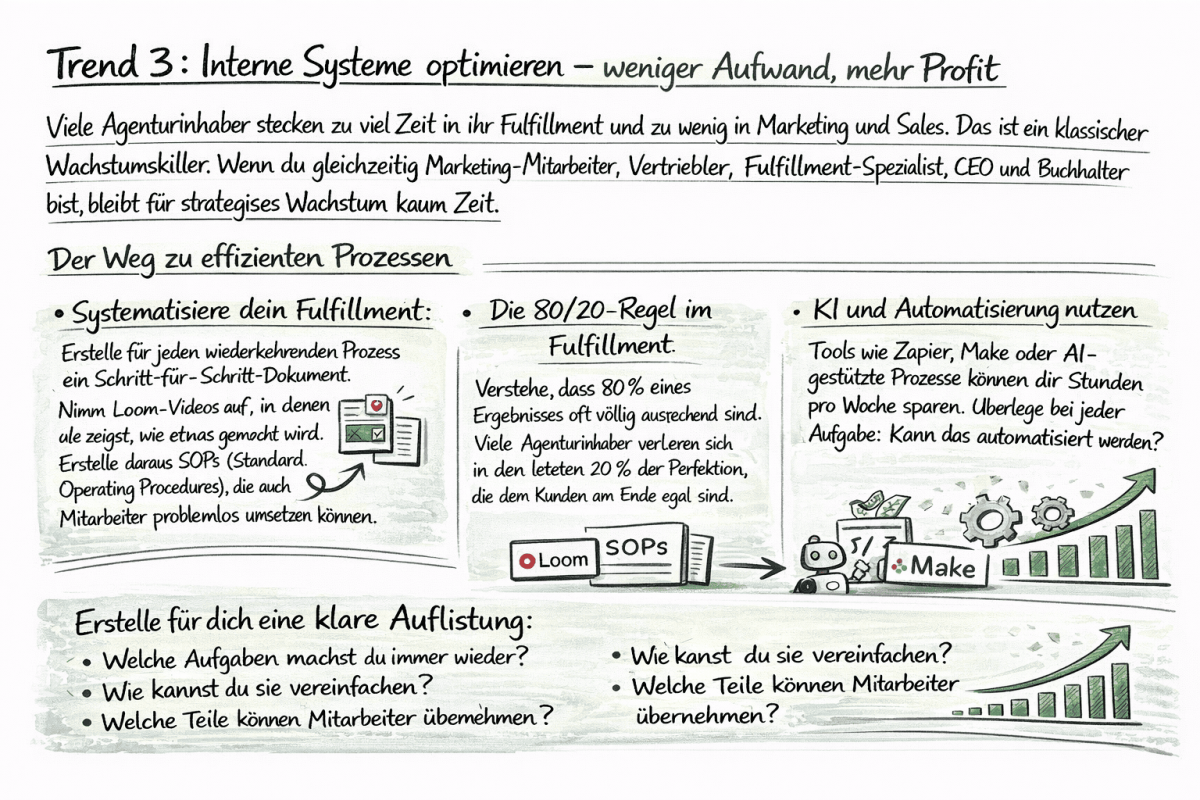 Trend 3: Interne Systeme optimieren – weniger Aufwand, mehr Profit
Viele Agenturinhaber stecken zu viel Zeit in ihr Fulfillment und zu wenig in Marketing und Sales. Das ist ein klassischer
Wachstumskiller. Wenn du gleichzeitig Marketing-Mitarbeiter, Vertriebler, Fulfillment-Spezialist, CEO und Buchhalter
bist, bleibt für strategises Wachstum kaum Zeit.
Der Weg zu effizienten Prozessen
• Systematisiere dein Fulfillment:
Erstelle für jeden wiederkehrenden Prozess
ein Schritt-für-Schritt-Dokument.
Nimm Loom-Videos auf, in denen
ule zeigst, wie etnas gemacht wird.
Erstelle daraus SOPs (Standard.
Operating Procedures), die auch
Mitarbeiter problemlos umsetzen können.
• Die 80/20-Regel im
Fulfillment.
Verstehe, dass 80 % eines
Ergebnisses oft völlig ausrechend sind.
Viele Agenturinhaber verleren sich
in den leteten 20 % der Perfektion,
die dem Kunden am Ende egal sind.
Loom
SOPs
• KI und Automatisierung nutzen
Tools wie Zapier, Make oder AI-
gestützte Prozesse können dir Stunden
pro Woche sparen. Uberlege bei jeder
Aufgabe: Kann das automatisiert werden?
Make
Erstelle für dich eine klare Auflistung:
• Welche Aufgaben machst du immer wieder?
• Wie kannst du sie vereinfachen?
• Welche Teile können Mitarbeiter übemehmen?
• Wie kanst du sie vereinfachen?
• Welche Teile können Mitarbeiter
übernehmen?